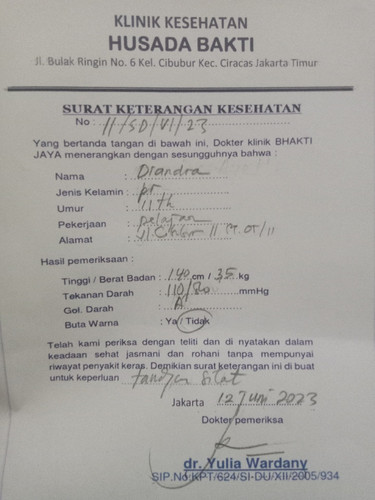 KLINIK KESEHATAN
HUSADA BAKTI
Jl. Bulak Ringin No. 6 Kel. Cibubur Kec. Ciracas Jakarta Timur
SURAT KETERANGAN KESEHATAN
No : 11/SD/VI/23
Yang bertanda tangan di bawah ini, Dokter klinik BHAKTI
JAYA menerangkan dengan sesungguhnya bahwa :
Nama : Diandra
Jenis Kelamin : pr
Umur : 11 th
Pekerjaan : pelajar
Alamat : Jl Cibubur II
Hasil pemeriksaan :
Tinggi / Berat Badan : 140 cm / 35 kg
Tekanan Darah : 110/80 mmHg
Gol. Darah : A
Buta Warna : Ya / Tidak
Telah kami periksa dengan teliti dan di nyatakan dalam
keadaan sehat jasmani dan rohani tanpa mempunyai
riwayat penyakit keras. Demikian surat keterangan ini di buat
untuk keperluan : Silat
Jakarta 12 Juni 2023
Dokter pemeriksa
dr. Yulia Wardany
SIP.No KPT/624/SI-DU/XII/2005/934